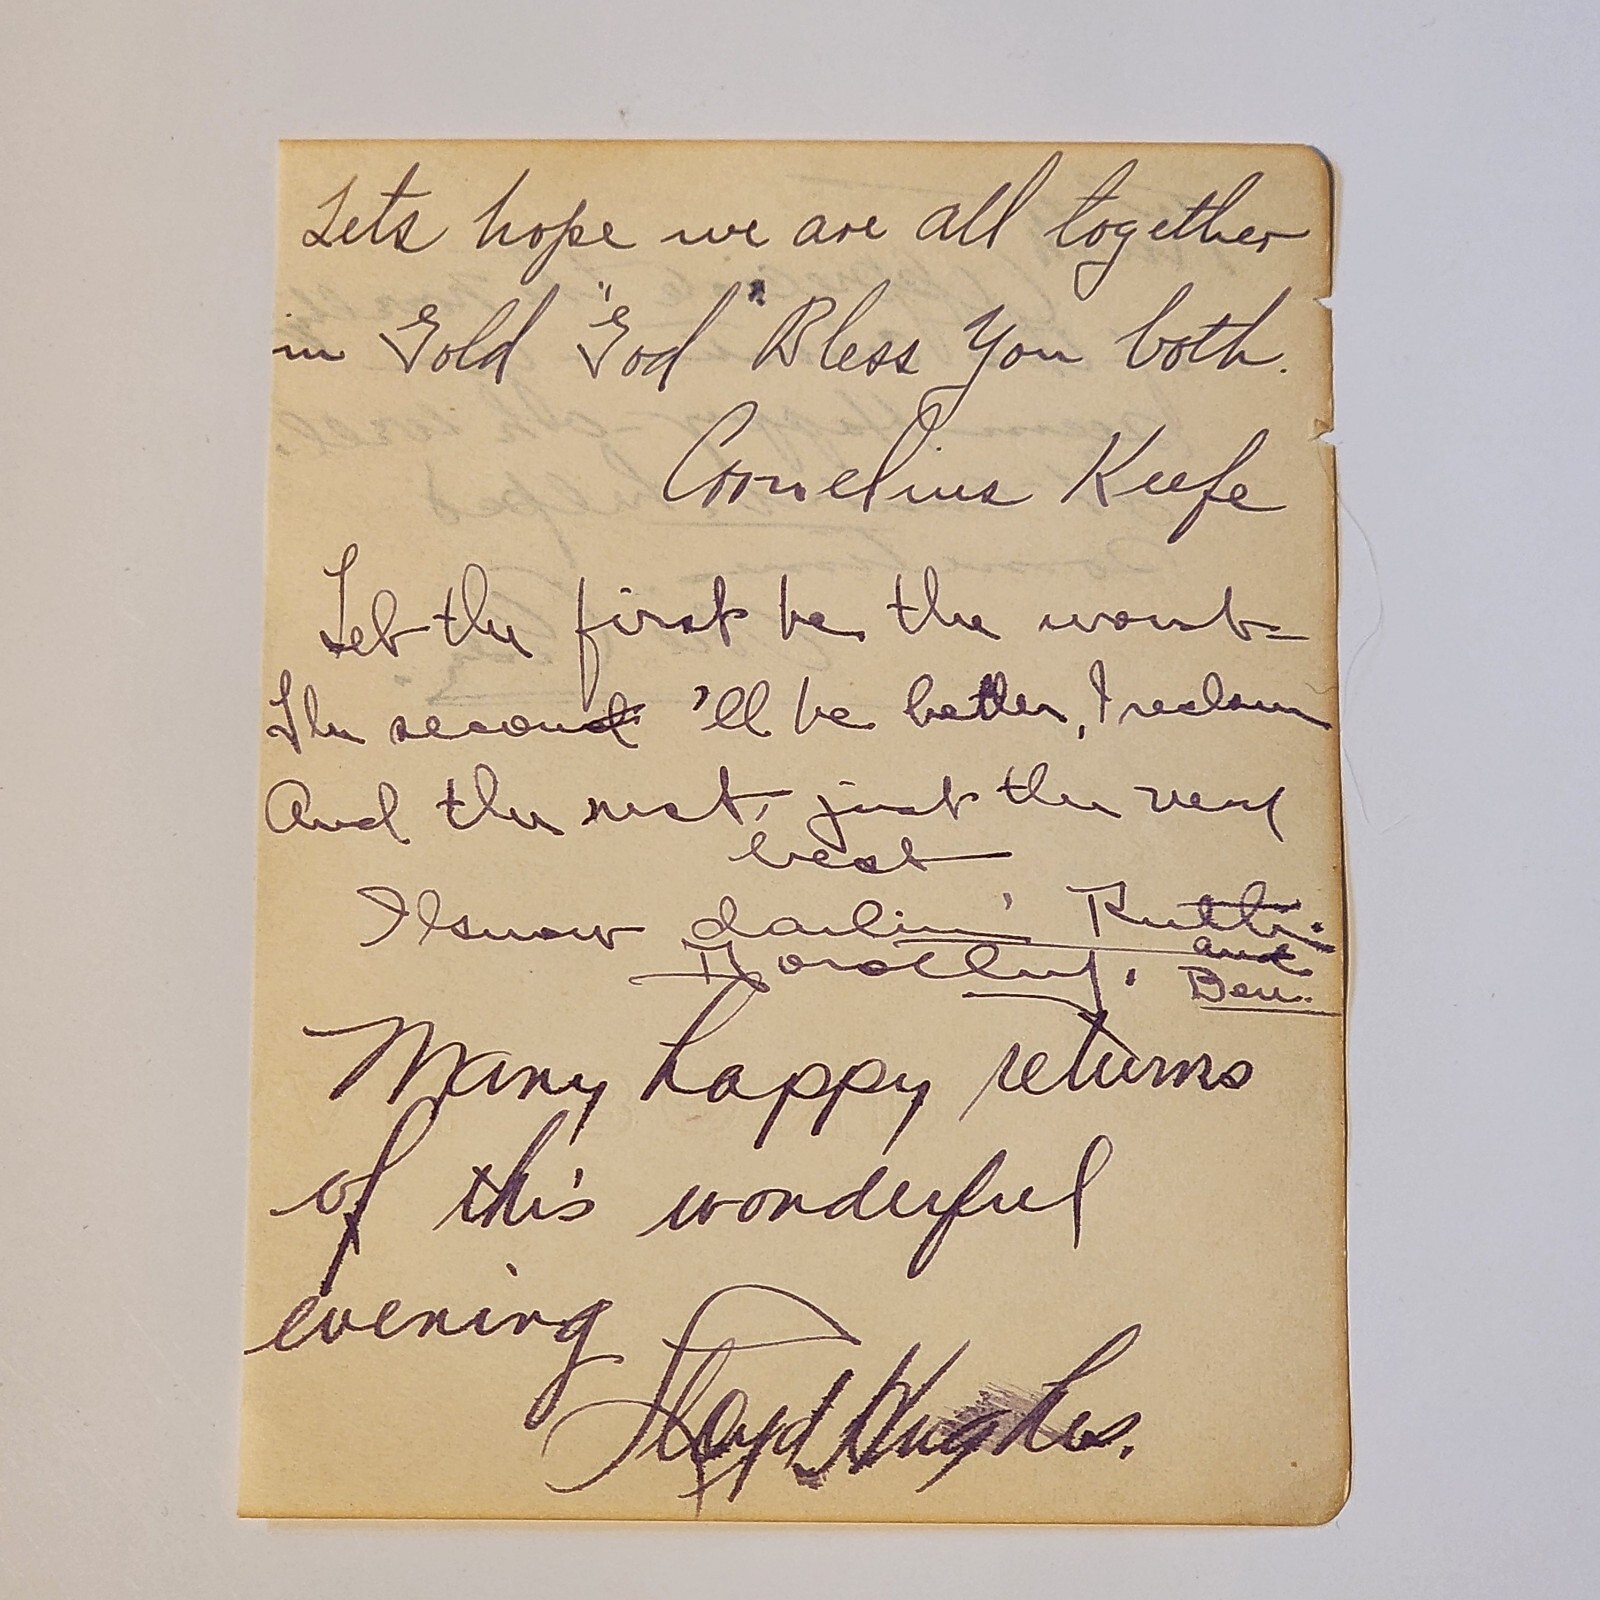 Lets hope we are all together
in Gold "God" Bless You both.
Cornelius Keefe
Let the first be the worst–
The second 'll be better, I reclam
And the rest, just the very
best
I know darlin' Ruth.
and
Dorothy. Ben.
Many happy returns
of this wonderful
evening
Lloyd Hughes.